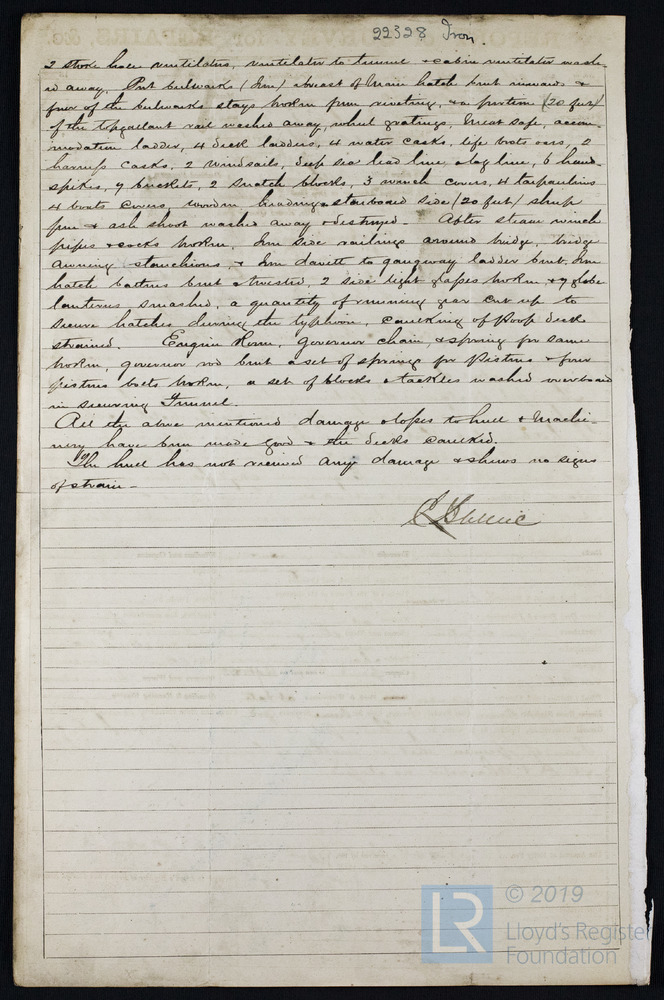 22328 Iron.
2 stoke hole ventilators, ventilator to tunnel & cabin ventilator wash-
ed away. Port bulwarks (Iron) abreast of Main hatch bent inwards &
four of the bulwarks stays broken from riveting, & a portion (20 feet)
of the topgallant rail washed away, wheel gratings, meat safe, accom-
modation ladder, 4 deck ladders, 4 water casks, life boats oars, 2
harness casks, 2 windsails, deep sea lead line, & log line, 6 hand-
spikes, 9 buckets, 2 snatch blocks, 3 winch covers, 4 tarpaulins
4 boats covers, wooden beading starboard side (20 feet) sheep
pen & ash shoot washed away & destroyed. After steam winch
pipes & cocks broken, Iron side railings around bridge, bridge
awning stanchions, & Iron davits to gangway ladder bent, Iron
hatch battens bent & twisted, 2 side light glasses broken & 9 globe
lanterns smashed, a quantity of running gear cut up to
secure hatches during the typhoon, caulking of Poop deck
strained. Engine Room, governor chain, & spring for same
broken, governor rod bent a set of springs for Pistons & four
pistons bolts broken, a set of blocks & tackles washed overboard
in securing Funnel.
All the above mentioned damage & losses to hull & Machi-
nery have been made good & the decks caulked.
The hull has not received any damage & shews no signs
of strain -
© 2019
LR
Lloyd's Register
Foundation